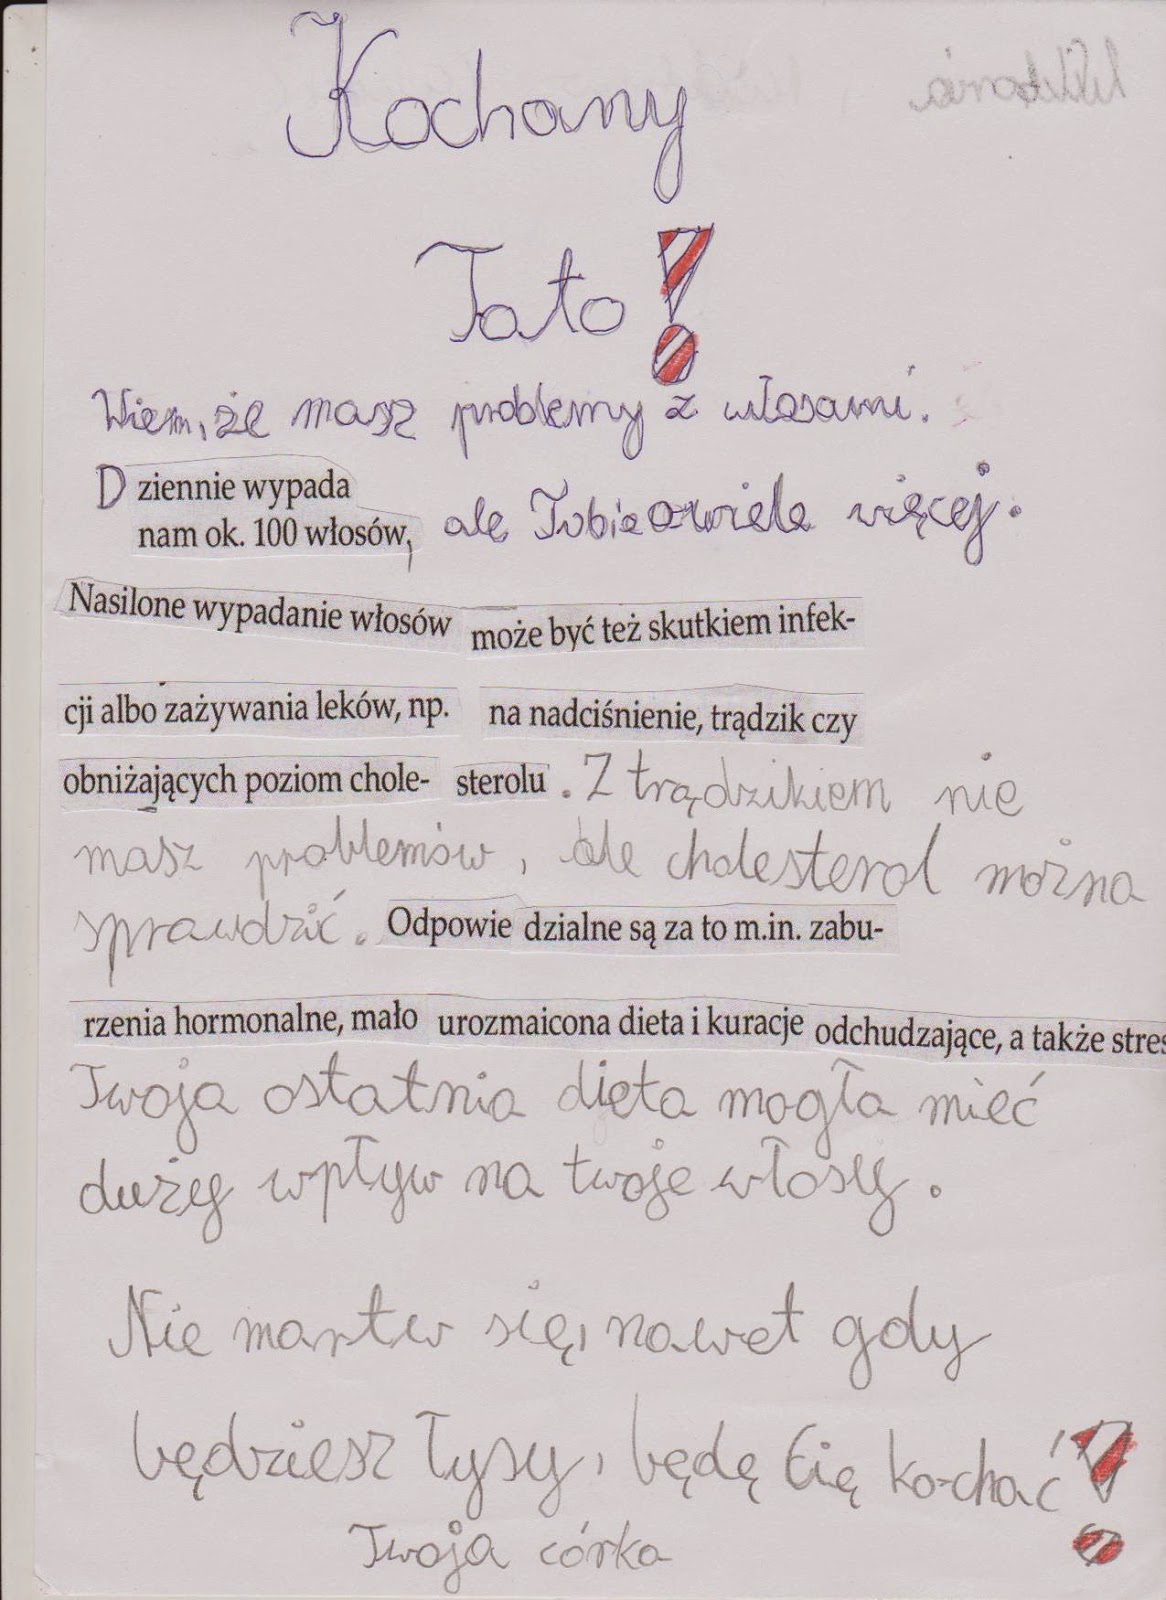 Kochany
Tato!
Wiem, że masz problemy z włosami.
Dziennie wypada
nam ok. 100 włosów, ale Tobie owiele więcej.
Nasilone wypadanie włosów może być też skutkiem infek-
cji albo zażywania leków, np. na nadciśnienie, trądzik czy
obniżających poziom chole- sterolu. Z trądzikiem nie
masz problemów, ale cholesterol można
sprawdzić. Odpowie dzialne są za to m.in. zabu-
rzenia hormonalne, mało urozmaicona dieta i kuracje odchudzające, a także stres
Twoja ostatnia dieta mogła mieć
duży wpływ na twoje włosy.
Nie martw się, nawet gdy
będziesz łysy, będę Cię kochać!
Twoja córka